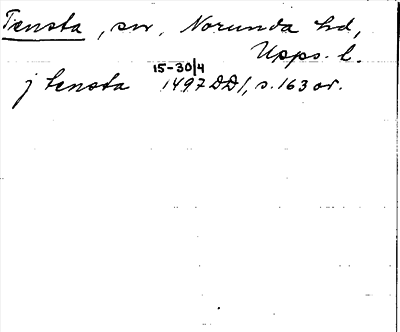 Tensta, sn, Norunda hd,
Upps. l.
15-30/4
j tensta 1497 DD1, s. 163 or.